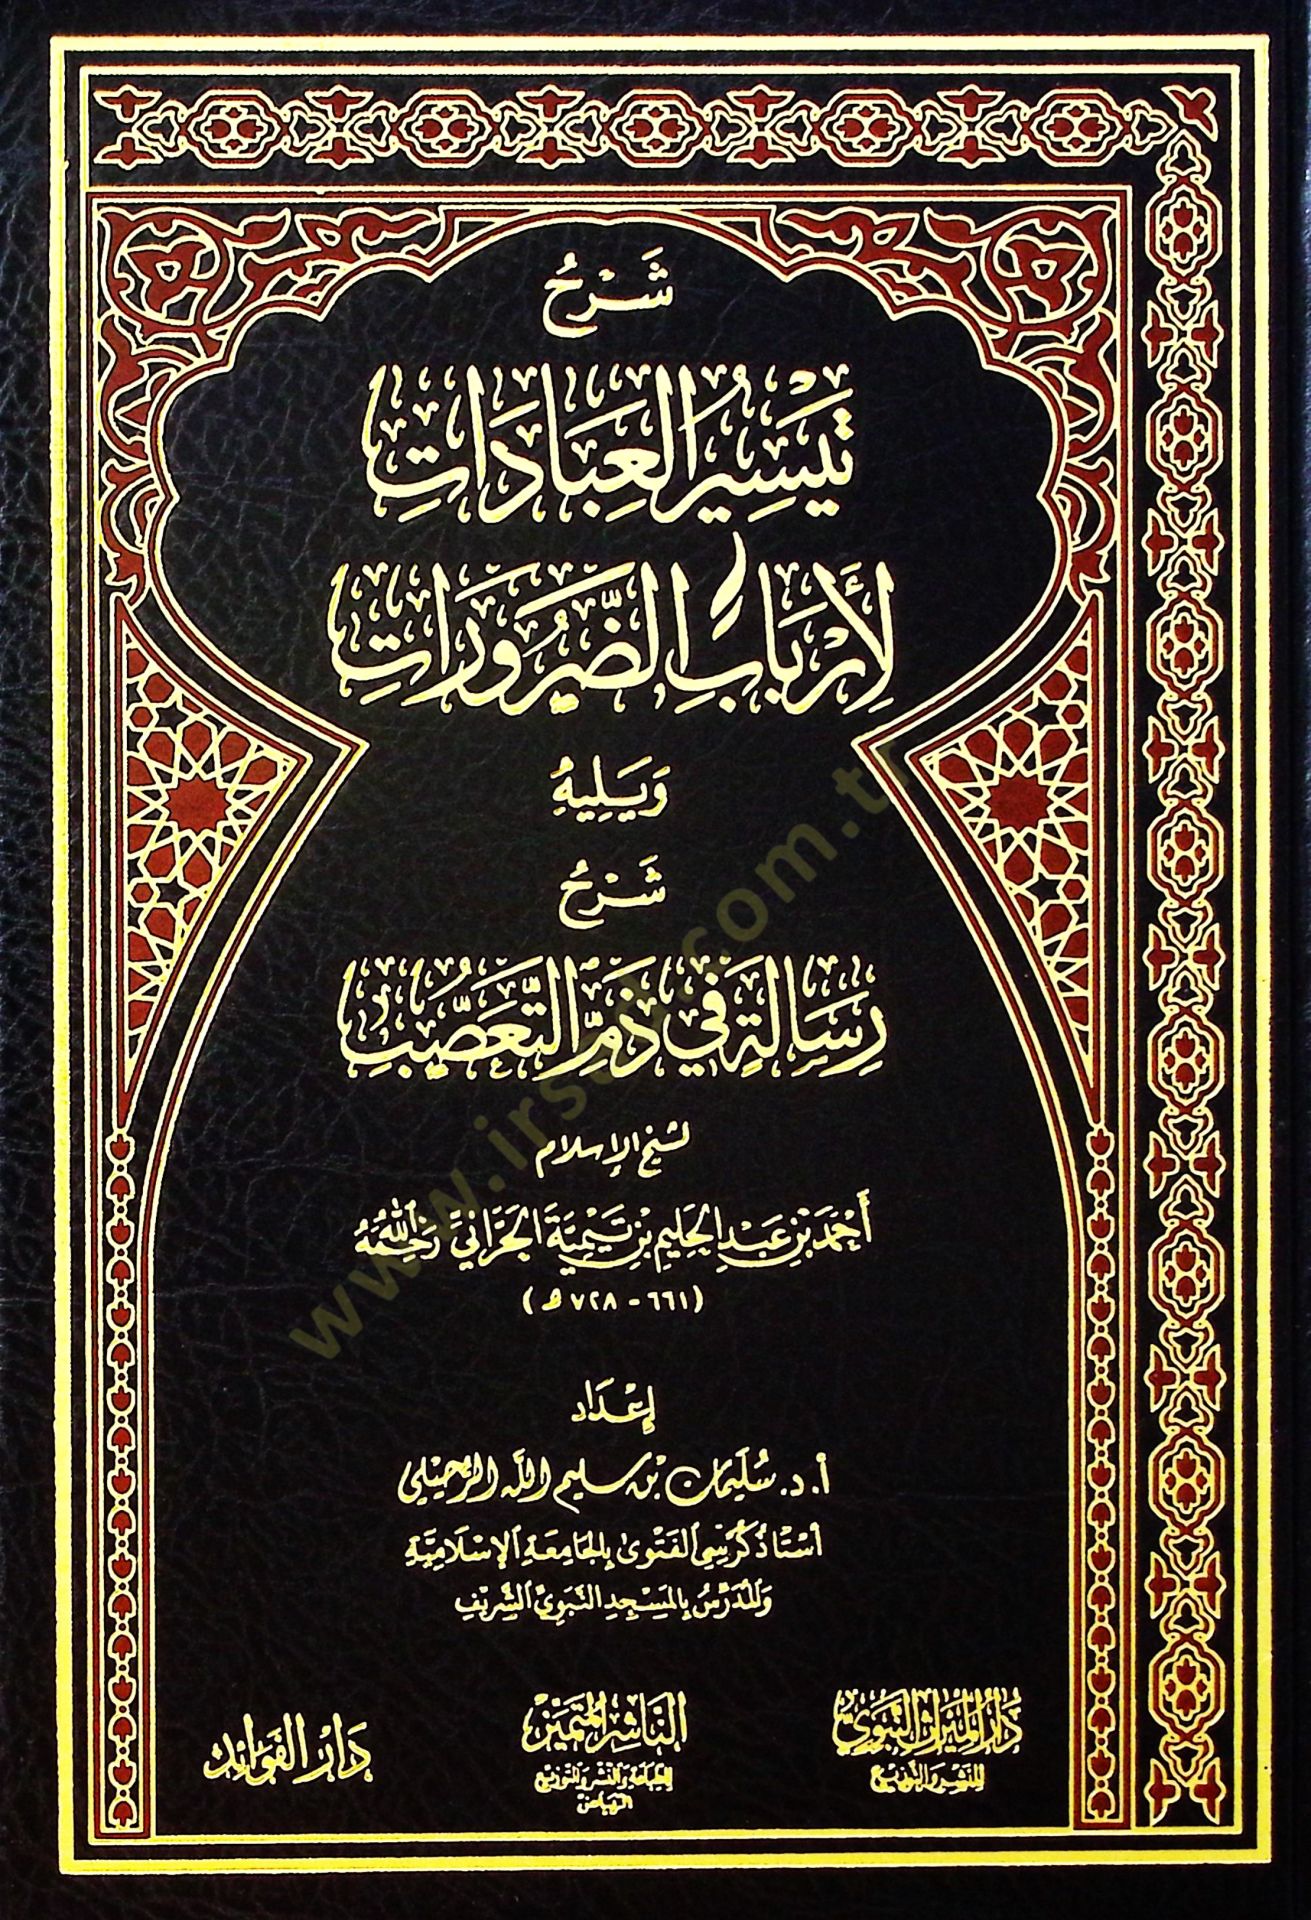 شَرْحُ
تَيْسِيْرِ العِبَادَاتِ
لِأَرْبَابِ الضَّرُورَاتِ
وَيَلِيْهِ
شَرْحُ
رِسَالَةٍ فِي ذَمِّ التَّعَصُّبِ
لشيخ الإسلام
أَحْمَدَ بْنِ عَبْدِ الحَلِيمِ بْنِ تَيْمِيَّةَ الحَرَّانِيِّ رَحِمَهُ اللهُ
(٦٦١ - ٧٢٨ هـ)
إِعْدَاد
أ. د. سُلَيْمَان بْن سليم الله الرُّحَيْلي
أُسْتَاذُ كُرْسِي الفَتْوَى بِالجَامِعَةِ الإِسْلَامِيَّةِ
وَالمُدَرِّسُ بِالمَسْجِدِ النَّبَوِيِّ الشَّرِيْفِ
دَارُ المِيْرَاثِ النَّبَوِيِّ
للنشر والتوزيع
النَّاشِرُ المُتَمَيِّزُ
للطباعة والنشر والتوزيع
الرياض
دَارُ الفَوَائِد